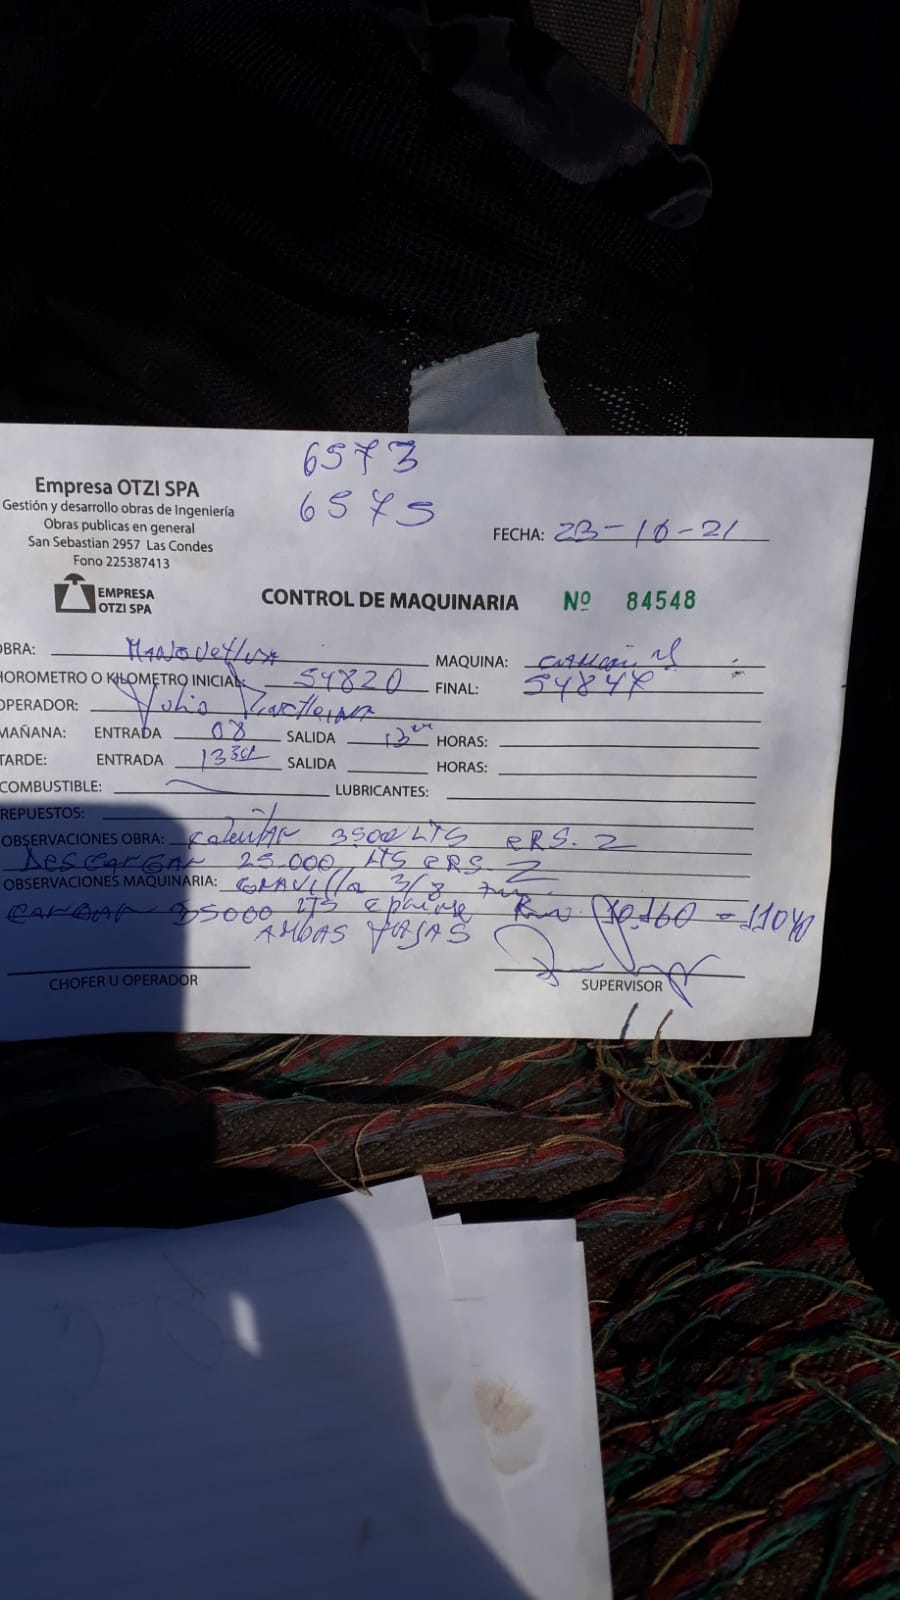 6573
6575
Empresa OTZI SPA
Gestión y desarrollo obras de Ingeniería
Obras publicas en general
San Sebastian 2957 Las Condes
Fono 225387413
FECHA: 23-10-21
EMPRESA
OTZI SPA
CONTROL DE MAQUINARIA Nº 84548
OBRA: MAQUINA:
HOROMETRO O KILOMETRO INICIAL: 54820 FINAL: 54847
OPERADOR: Julio
MAÑANA: ENTRADA 08 SALIDA 13 HORAS:
TARDE: ENTRADA 1330 SALIDA HORAS:
COMBUSTIBLE: LUBRICANTES:
REPUESTOS:
OBSERVACIONES OBRA: 3500 LTS CRS. 2
DESCARGAR 25.000 LTS CRS. 2
OBSERVACIONES MAQUINARIA: GRAVILLA 3/8
CARGAR 35000 LTS 10.160 - 11040
AMBAS FAJAS
CHOFER U OPERADOR SUPERVISOR